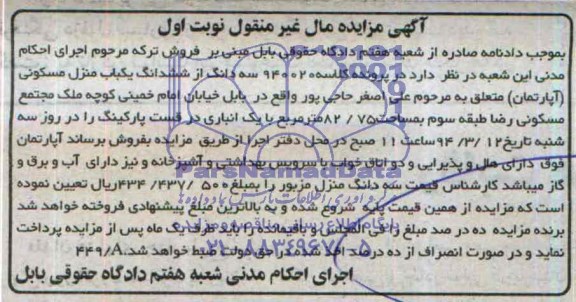 آگهی مزایده مال غیر منقول نوبت اول
بموجب دادنامه صادره از شعبه هفتم دادگاه حقوقی بابل مبنی بر فروش ترکه مرحوم اجرای احکام
مدنی این شعبه در نظر دارد در پرونده کلاسه ۹۴۰۰۲۰ سه دانگ از ششدانگ یکباب منزل مسکونی
(آپارتمان) متعلق به مرحوم علی اصغر حاجی پور واقع در بابل خیابان امام خمینی کوچه ملک مجتمع
مسکونی رضا طبقه سوم بمساحت ۸۲/۷۵ مترمربع با یک انباری در قسمت پارکینگ را در روز سه
شنبه تاریخ ۹۴/۳/۱۲ ساعت ۱۱ صبح در محل دفتر اجرا از طریق مزایده بفروش برساند آپارتمان
فوق دارای هال و پذیرایی و دو اتاق خواب با سرویس بهداشتی و آشپزخانه و نیز دارای آب و برق و
گاز میباشد کارشناس قیمت سه دانگ منزل مزبور را بمبلغ ۴۳۴/۴۳۷/۵۰۰ ریال تعیین نموده
است که مزایده از همین قیمت پایه شروع شده و به بالاترین مبلغ پیشنهادی فروخته خواهد شد
برنده مزایده ده در صد مبلغ را فی المجلس و باقیمانده را باید ظرف یک ماه پس از مزایده پرداخت
نماید و در صورت انصراف از ده درصد اخذ شده در حق دولت ضبط خواهد شد. ۴۴۹/A
اجرای احکام مدنی شعبه هفتم دادگاه حقوقی بابل
ParsNamadData
۰۲۱-۸۸۳۴۹۶۷۰-۵